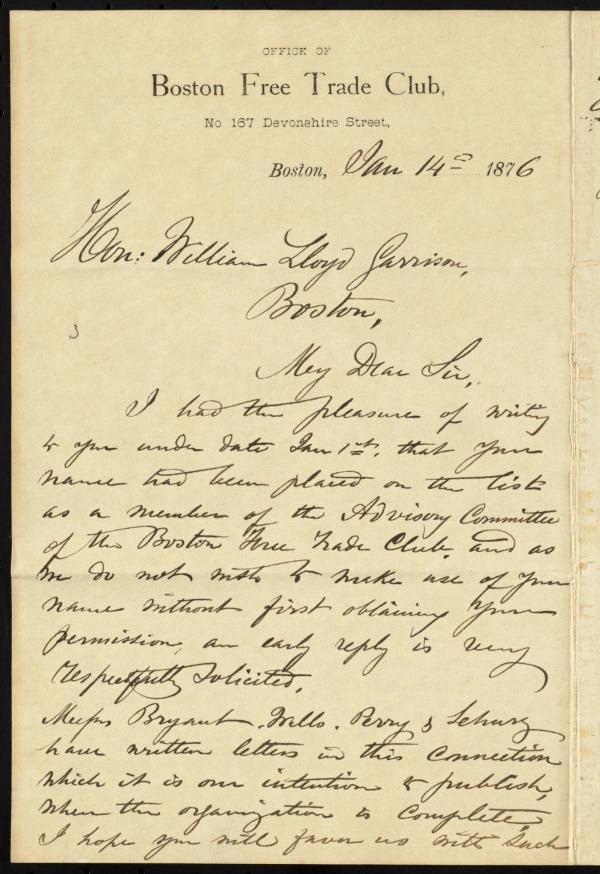 OFFICE OF
Boston Free Trade Club,
No 167 Devonshire Street,
Boston, Jan 14th 1876
Hon: William Lloyd Garrison,
Boston,
3
My Dear Sir,
I had the pleasure of writing
to you under date Jan 1st, that your
name had been placed on the list
as a member of the Advisory Committee
of the Boston Free Trade Club, and as
we do not wish to make use of your
name without first obtaining your
permission, an early reply is very
respectfully solicited.
Messrs Bryant, Wells, Perry & Schurz
have written letters in this connection
which it is our intention to publish,
when the organization is complete,
I hope you will favor us with such